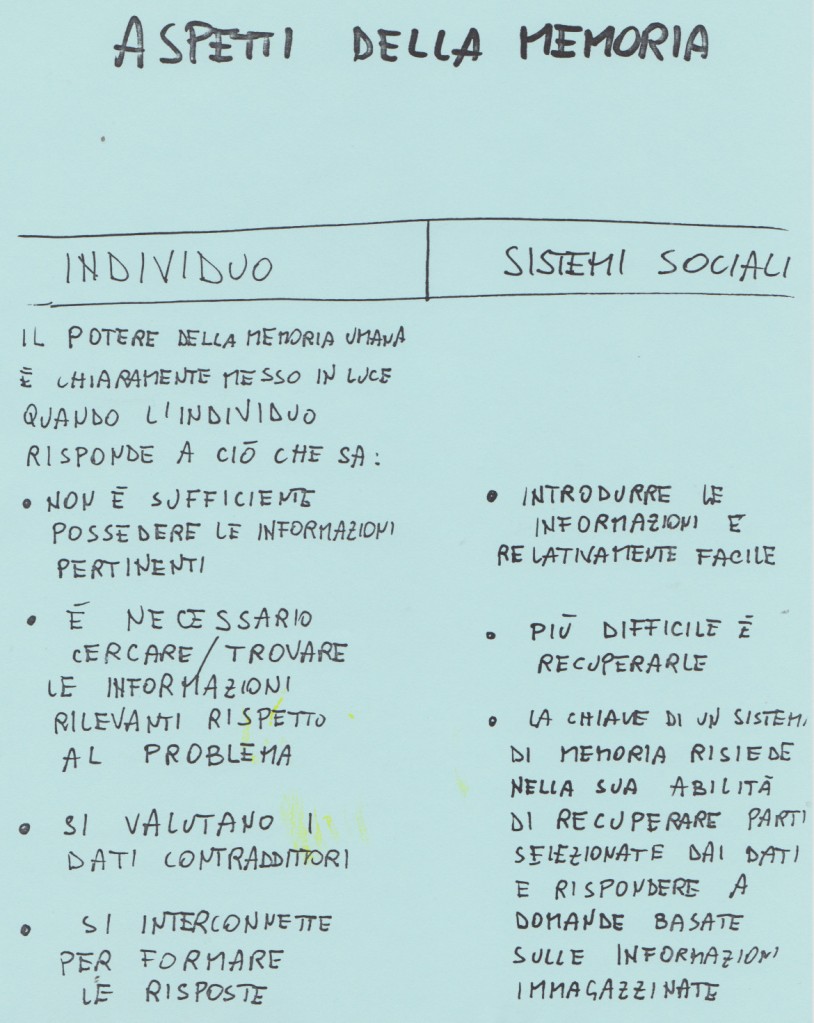 ASPETTI DELLA MEMORIA
INDIVIDUO
IL POTERE DELLA MEMORIA UMANA
È CHIARAMENTE MESSO IN LUCE
QUANDO L'INDIVIDUO
RISPONDE A CIÒ CHE SA:
• NON È SUFFICIENTE
POSSEDERE LE INFORMAZIONI
PERTINENTI
• È NECESSARIO
CERCARE/TROVARE
LE INFORMAZIONI
RILEVANTI RISPETTO
AL PROBLEMA
• SI VALUTANO I
DATI CONTRADDITTORI
• SI INTERCONNETTE
PER FORMARE
LE RISPOSTE
SISTEMI SOCIALI
• INTRODURRE LE
INFORMAZIONI E
RELATIVAMENTE FACILE
• PIÙ DIFFICILE È
RECUPERARLE
• LA CHIAVE DI UN SISTEM
DI MEMORIA RISIEDE
NELLA SUA ABILITÀ
DI RECUPERARE PARTI
SELEZIONATE DAI DATI
E RISPONDERE A
DOMANDE BASATE
SULLE INFORMAZIONI
IMMAGAZZINATE